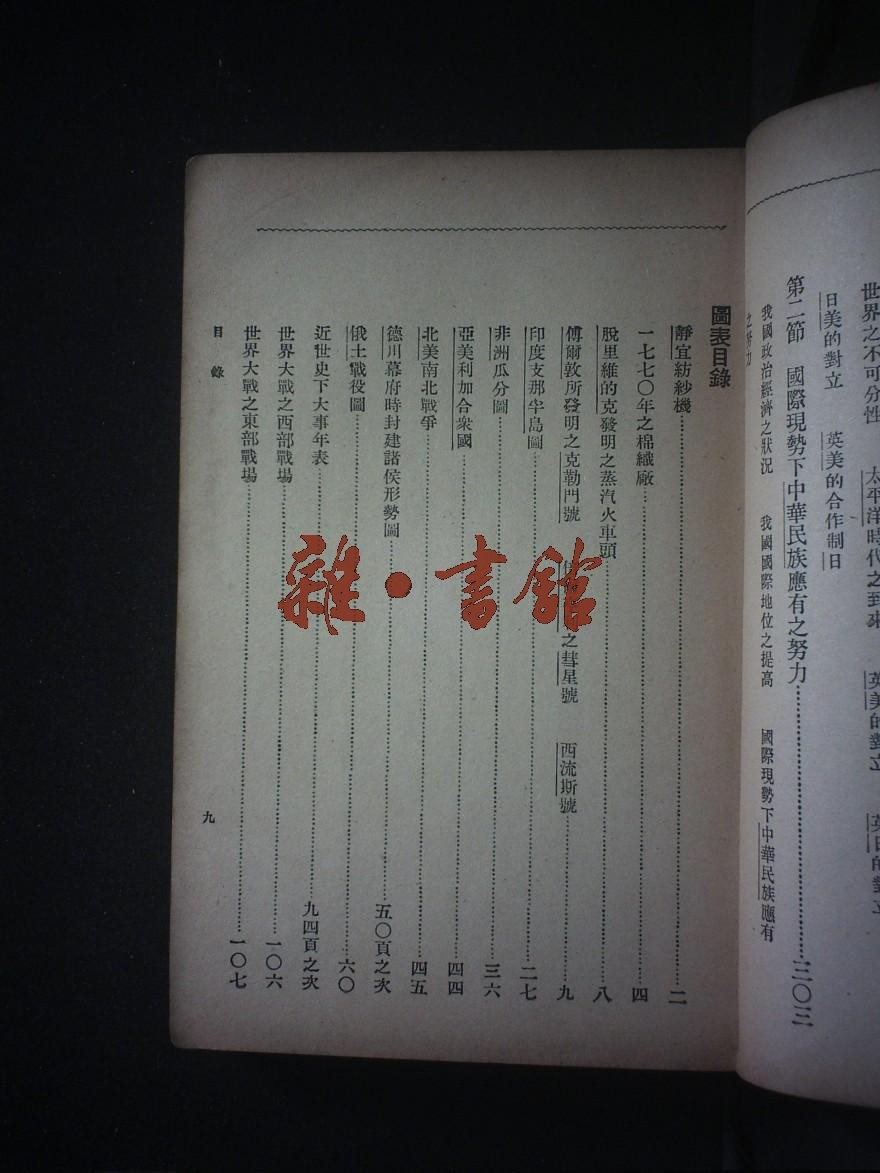 世界之不可分性　太平洋時代之到來　英美的對立　英日的對立
日美的對立　英美的合作制日
第二節　國際現勢下中華民族應有之努力……三〇三
我國政治經濟之狀況　我國國際地位之提高　國際現勢下中華民族應有
之努力
圖表目錄
靜宜紡紗機……二
一七七〇年之棉織廠……四
脫里維的克發明之蒸汽火車頭……八
傅爾敦所發明之克勒門號　之彗星號　西流斯號……九
印度支那半島圖……二七
非洲瓜分圖……三六
亞美利加合衆國……四四
北美南北戰爭……四五
德川幕府時封建諸侯形勢圖……五〇頁之次
俄土戰役圖……六〇
近世史下大事年表……九四頁之次
世界大戰之西部戰場……一〇六
世界大戰之東部戰場……一〇七
目錄
九
雜·書館